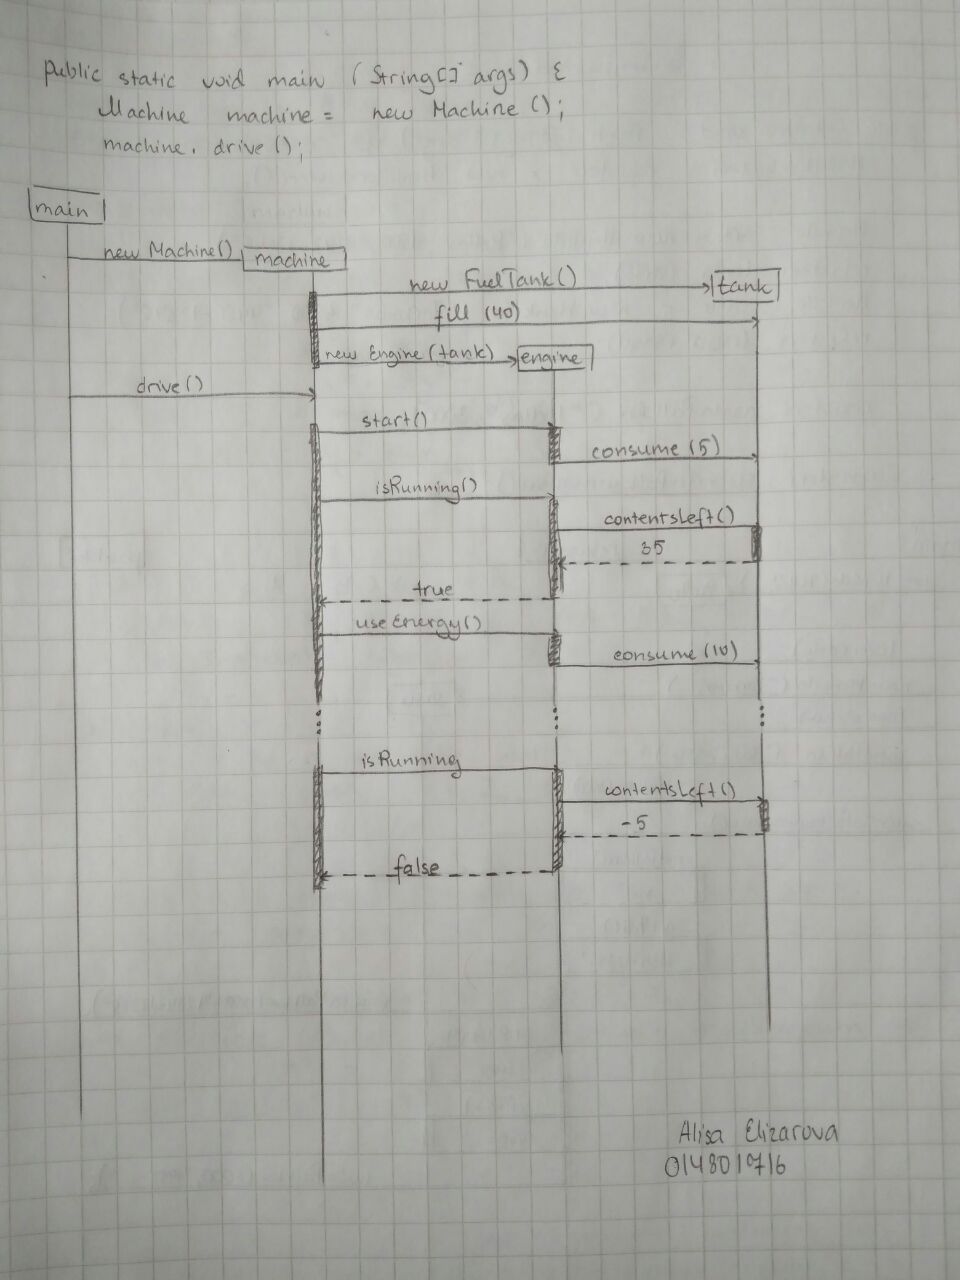 public static void main (String[] args) {
Machine machine = new Machine ();
machine. drive ();
main
new Machine()
machine
new FuelTank()
tank
fill (40)
new Engine (tank)
engine
drive()
start()
consume (5)
isRunning()
contentsLeft()
35
true
useEnergy()
consume (10)
isRunning
contentsLeft()
-5
false
Alisa Elizarova
014801716